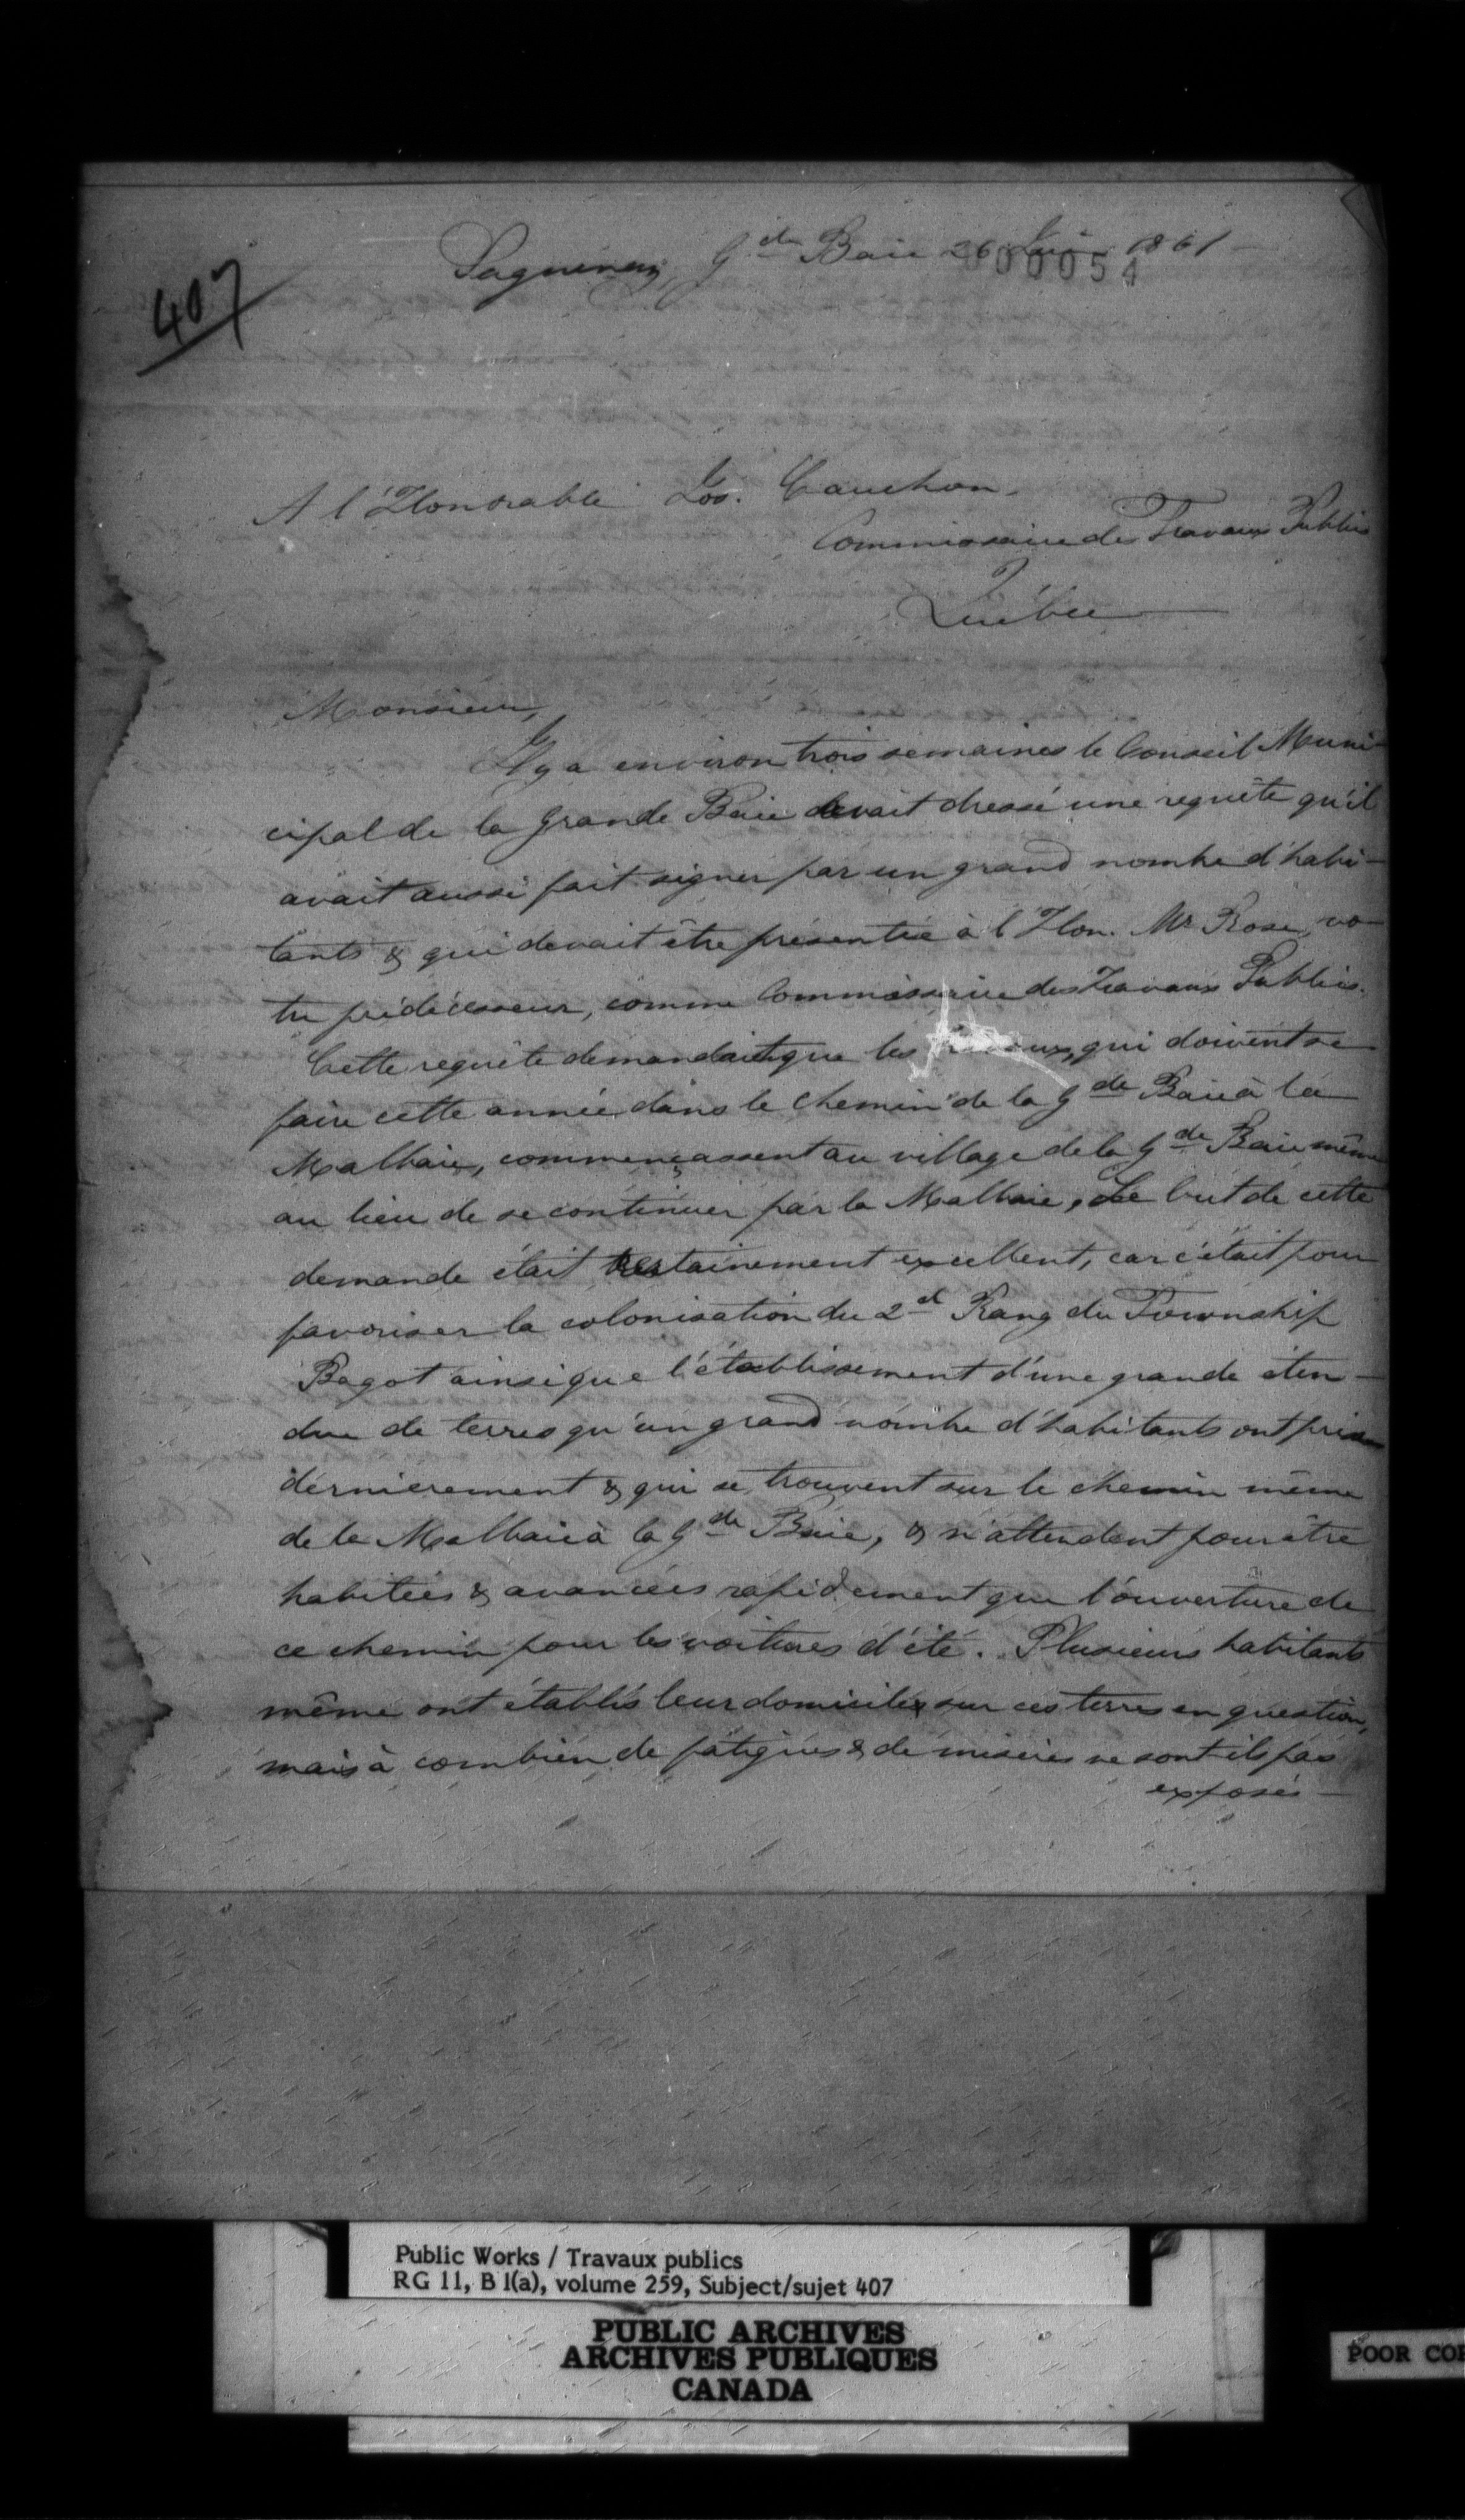 407
Saguenay, Gde Baie 26 Juin 1861
000054
A l'Honorable Jos. Cauchon.
Commissaire des Travaux Publics
Québec
Monsieur,
Il y a environ trois semaines le Conseil Muni-
cipal de la Grande Baie avait dressé une requête qu'il
avait aussi fait signer par un grand nombre d'habi-
tants & qui devait être présentée à l'Hon. Mr. Rose, vo-
tre prédécesseur, comme Commissaire des Travaux Publics.
Cette requête demandait que les travaux, qui doivent se
faire cette année dans le chemin de la Gde Baie à la
Malbaie, commençassent au village de la Gde Baie même
au lieu de se continuer par la Malbaie, Le but de cette
demande était certainement excellent, car c'était pour
favoriser la colonisation du 2d Rang du Township
Bagot ainsi que l'établissement d'une grande éten-
due de terres qu'un grand nombre d'habitants ont pris
dernièrement & qui se trouvent sur le chemin même
de la Malbaie à la Gde Baie, & n'attendent pour être
habitées & avancées rapidement que l'ouverture de
ce chemin pour les voitures d'été. Plusieurs habitants
même ont établis leur domicile sur ces terres en question,
mais à combien de fatigues & de misères ne sont-ils pas
exposés
Public Works / Travaux publics
RG 11, B 1(a), volume 259, Subject/sujet 407
PUBLIC ARCHIVES
ARCHIVES PUBLIQUES
CANADA
POOR CO